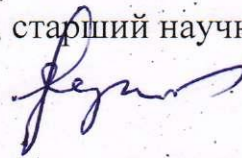 старший научн